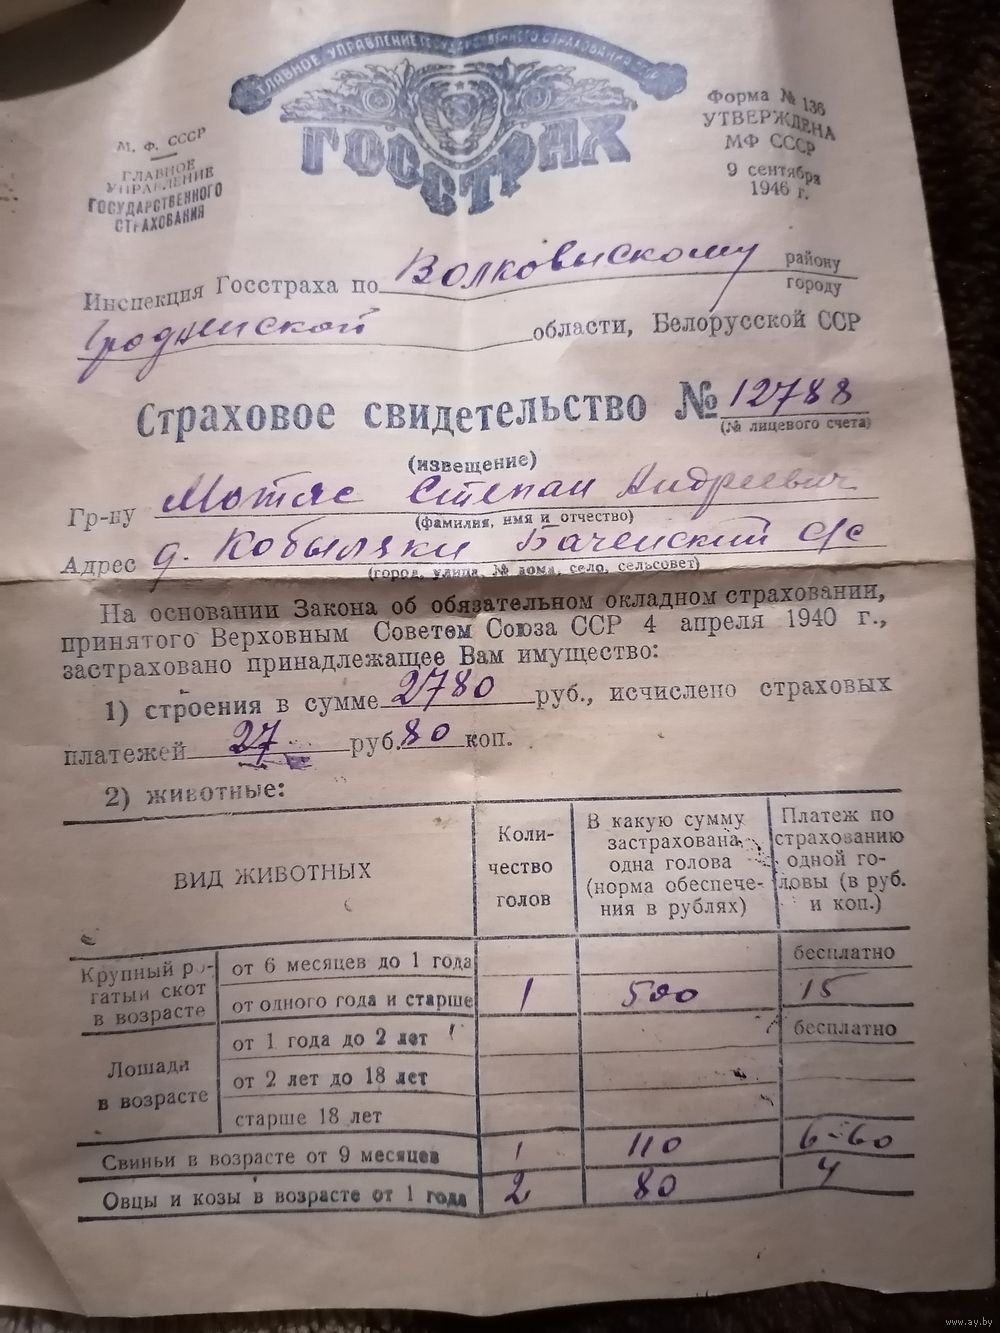 ГЛАВНОЕ УПРАВЛЕНИЕ ГОСУДАРСТВЕННОГО СТРАХОВАНИЯ СССР
ГОССТРАХ
М. Ф. СССР
ГЛАВНОЕ
УПРАВЛЕНИЕ
ГОСУДАРСТВЕННОГО
СТРАХОВАНИЯ
Форма № 136
УТВЕРЖДЕНА
МФ СССР
9 сентября
1946 г.
Инспекция Госстраха по Волковискому району
городу
Гродненской области, Белорусской ССР
Страховое свидетельство № 12788
(№ лицевого счета)
(извещение)
Гр-ну Мотяс Степан Андреевич
(фамилия, имя и отчество)
Адрес д. Кобыляки Баченский с/с
(город, улица, № дома, село, сельсовет)
На основании Закона об обязательном окладном страховании,
принятого Верховным Советом Союза ССР 4 апреля 1940 г.,
застраховано принадлежащее Вам имущество:
1) строения в сумме 2780 руб., исчислено страховых
платежей 27 руб. 80 коп.
2) животные:
ВИД ЖИВОТНЫХ
Коли-
чество
голов
В какую сумму
застрахована
одна голова
(норма обеспече-
ния в рублях)
Платеж по
страхованию
одной го-
ловы (в руб.
и коп.)
Крупный ро-
гатый скот
в возрасте
от 6 месяцев до 1 года бесплатно
от одного года и старше 1 500 15
Лошади
в возрасте
от 1 года до 2 лет бесплатно
от 2 лет до 18 лет
старше 18 лет
Свиньи в возрасте от 9 месяцев 1 110 6-60
Овцы и козы в возрасте от 1 года 2 80 4
www.ay.by